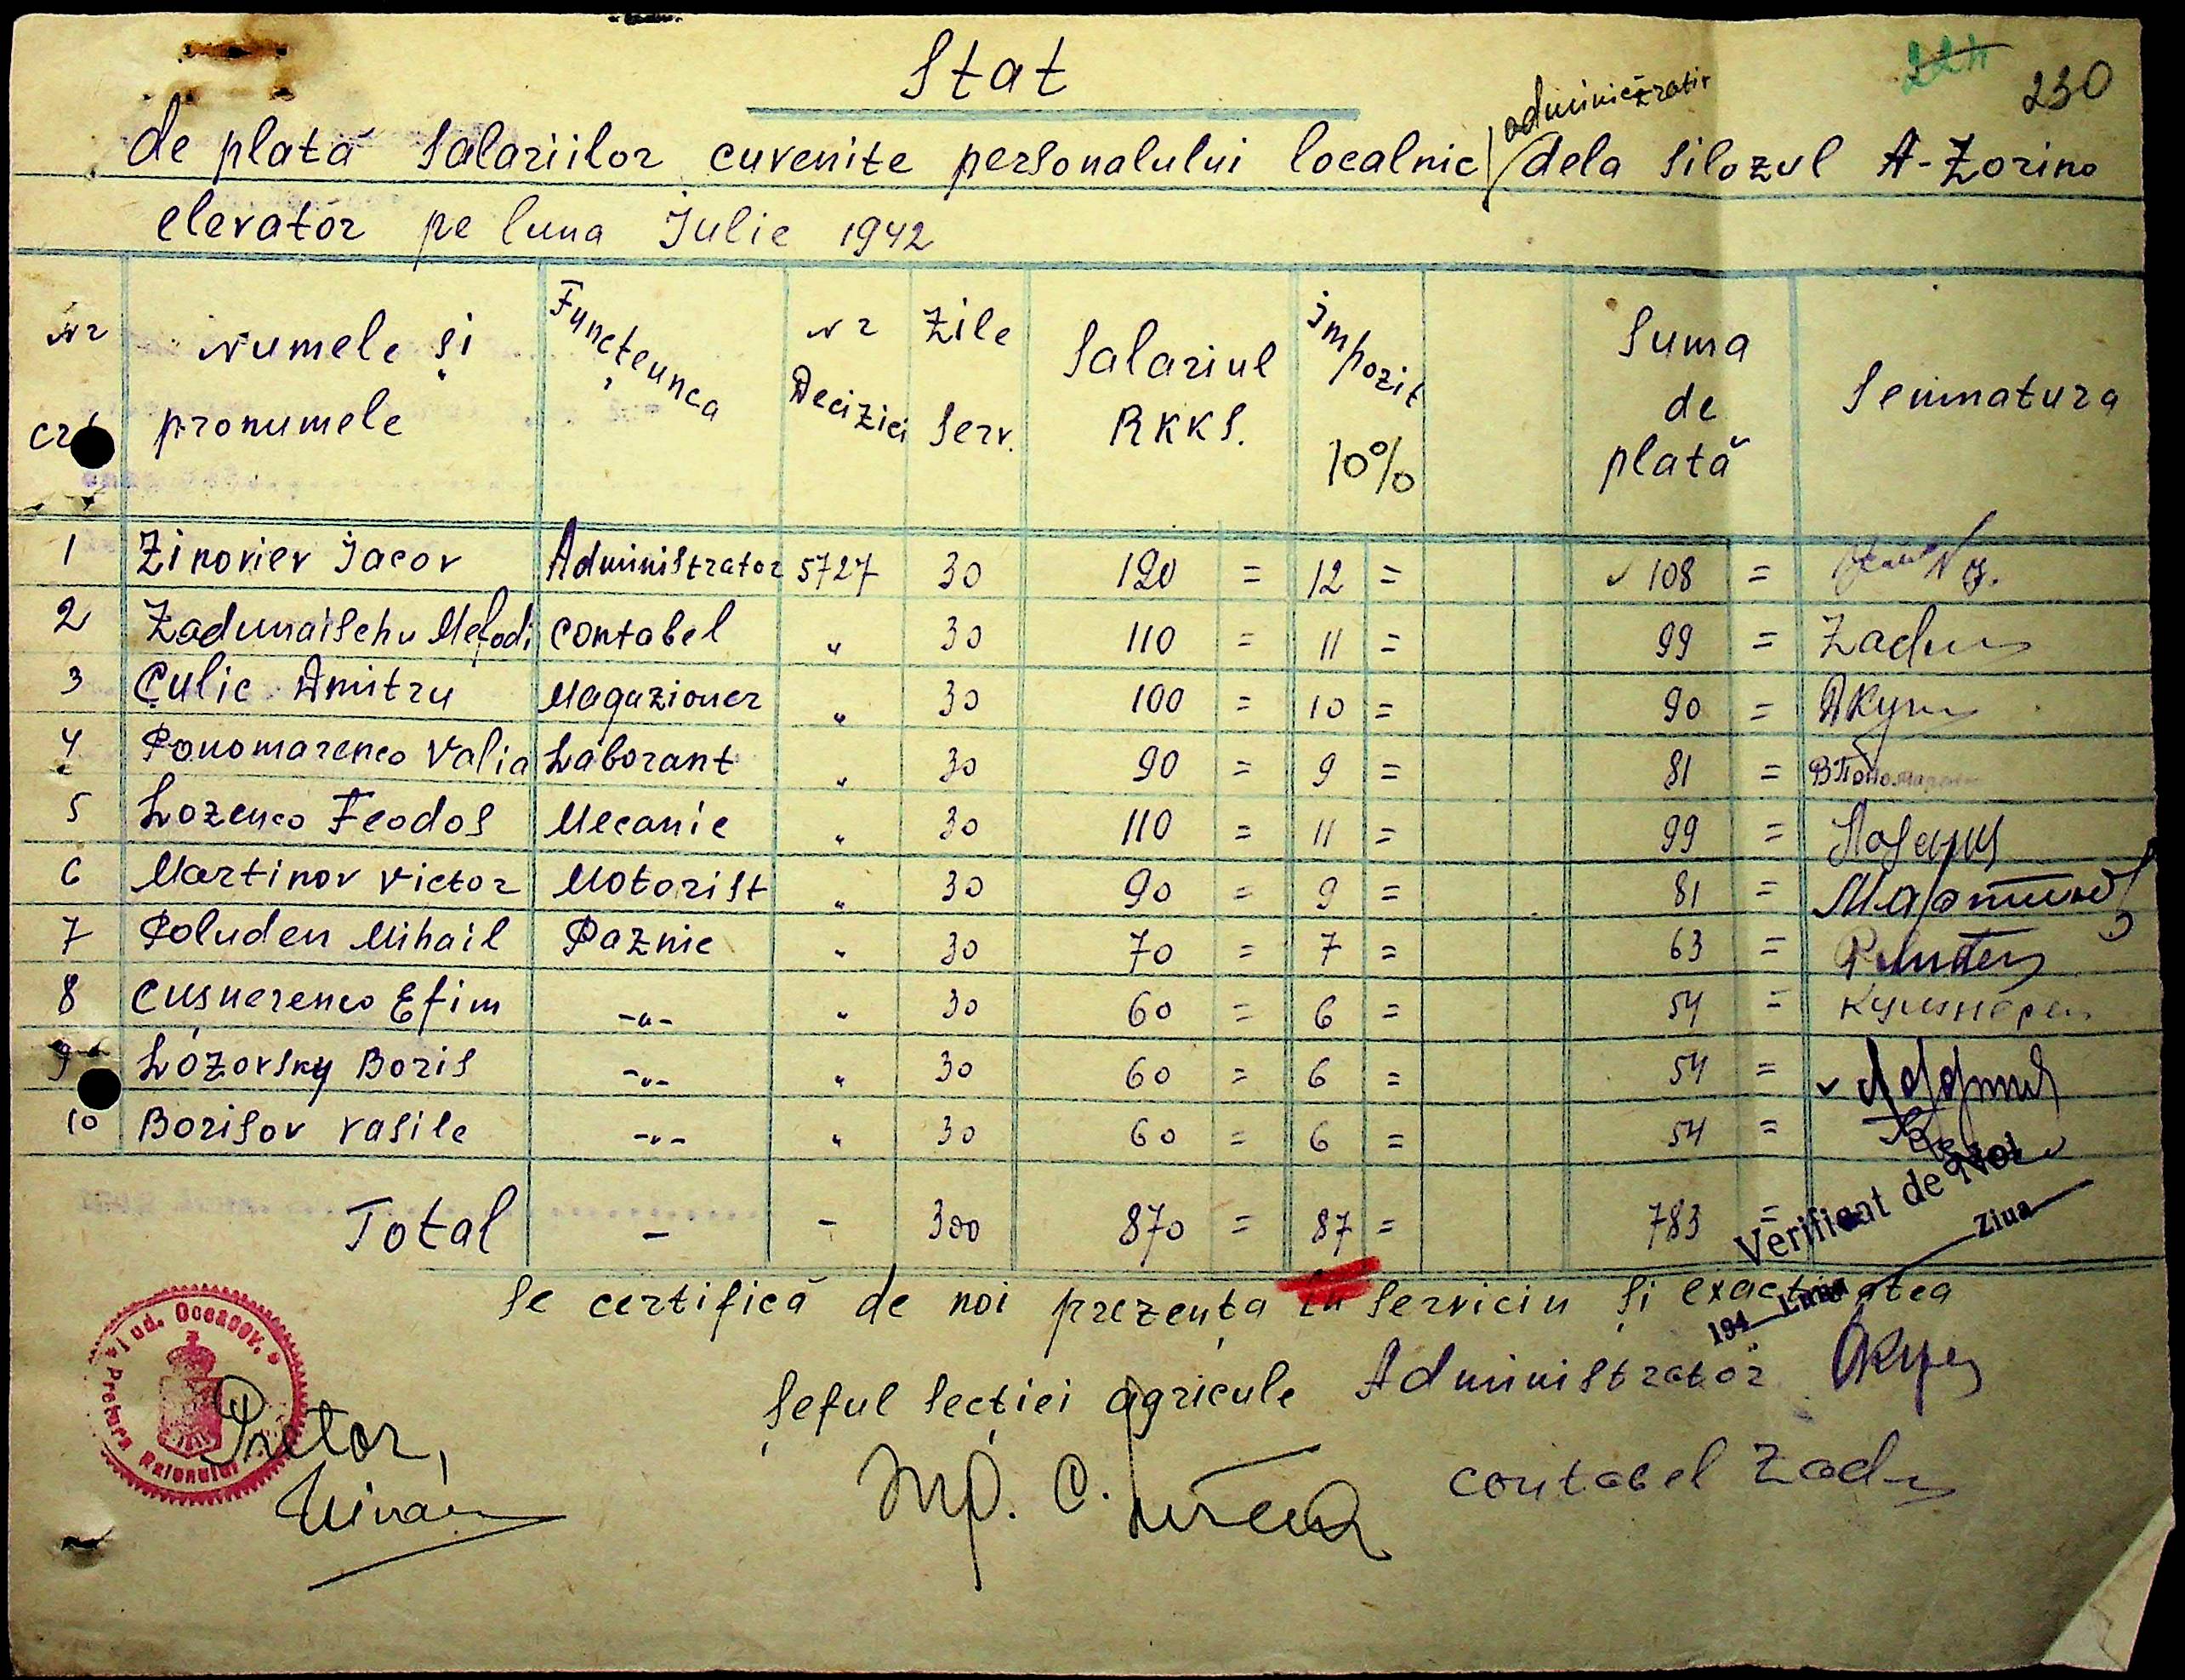 224 230
Stat
administrativ
de plată salariilor cuvenite personalului localnic dela silozul A-Zorino
elevator pe luna Julie 1942
Nr crt Numele și pronumele Functeunca Nr Deciziei Zile Serv. Salariul RKKS. Impozit 10% Suma de plată Semnatura
1 Zinoviev Jacov Administrator 5727 30 120 = 12 = 108 =
2 Zadunaischu Mefodi Contabel " 30 110 = 11 = 99 = Zadun
3 Culic Dmitru Magazioner " 30 100 = 10 = 90 = ДКули
4 Ponomarenco Valia Laborant " 30 90 = 9 = 81 = ВПономарен
5 Lozenco Feodos Mecanic " 30 110 = 11 = 99 =
6 Martinov Victor Motorist " 30 90 = 9 = 81 = Мартинов
7 Poluden Mihail Paznic " 30 70 = 7 = 63 =
8 Cusnerenco Efim -"- " 30 60 = 6 = 54 = Кушнерен
9 Lozovsky Boris -"- " 30 60 = 6 = 54 =
10 Borisov Vasile -"- " 30 60 = 6 = 54 =
Total - - 300 870 = 87 = 783 =
Verificat de Noi
Ziua
194 Luna
Se certifică de noi prezența în serviciu și exactitatea
Șeful secției agricule Administrator
Jud. Oceacov.
Pretura Raionului
Pretor,
contabel Zadu